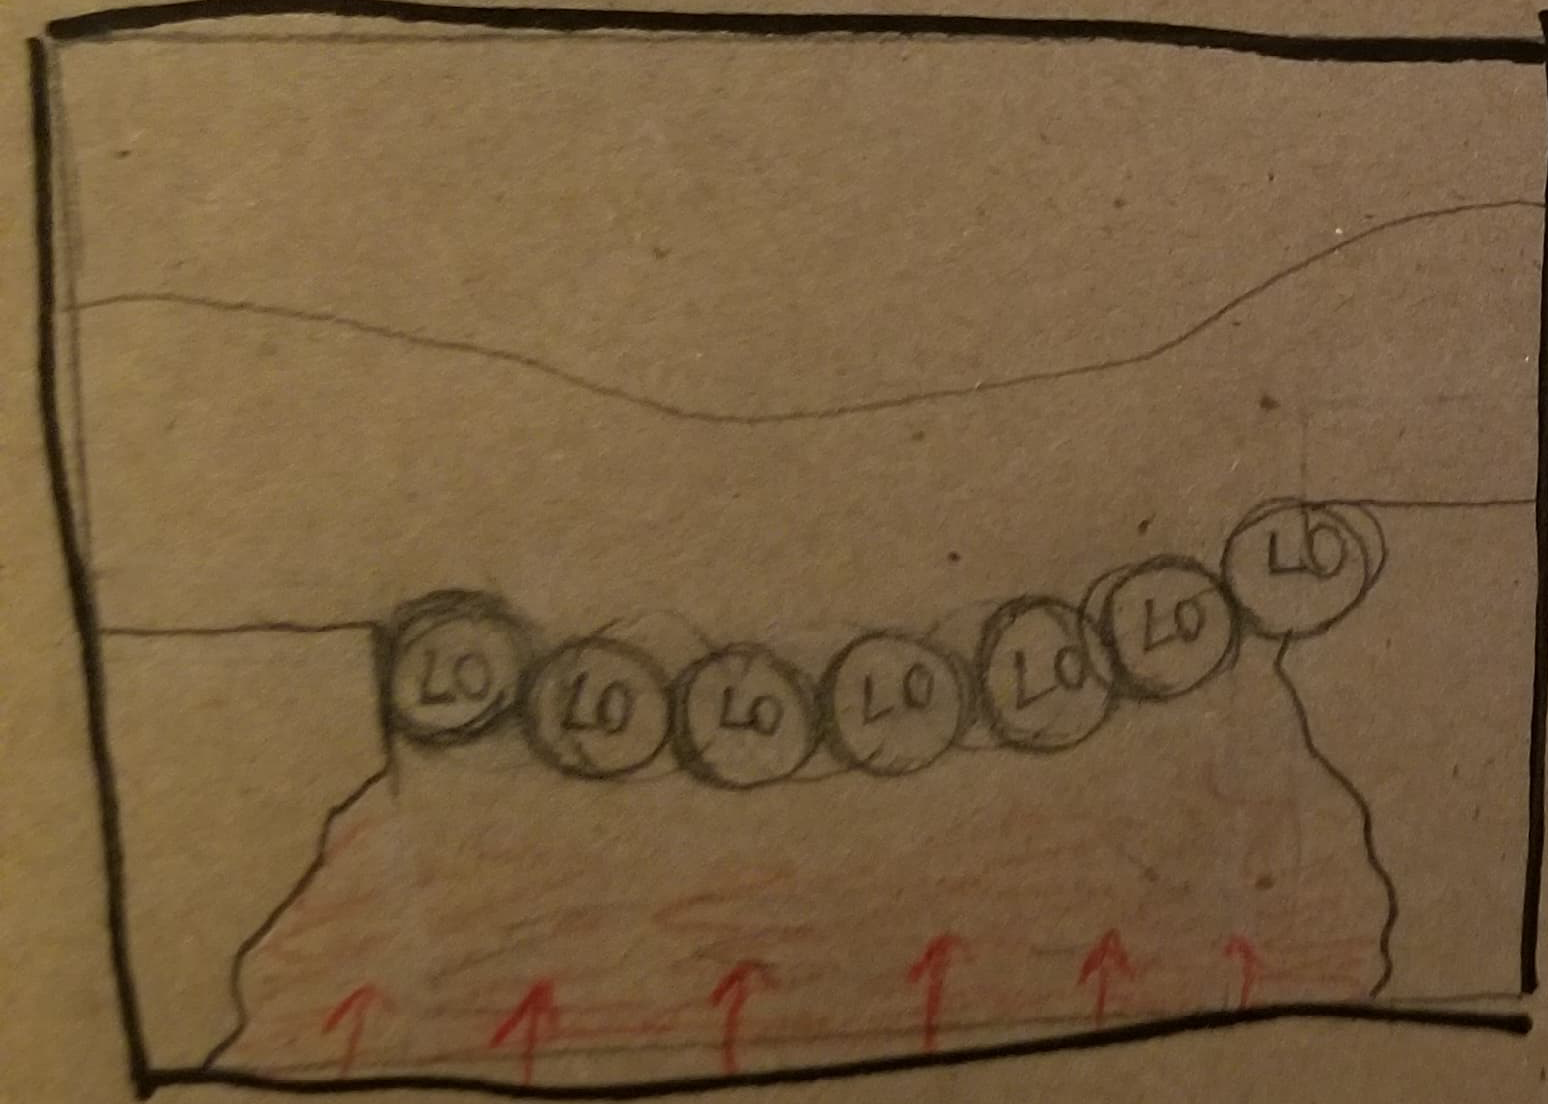 LO LO LO LO LO LO LO